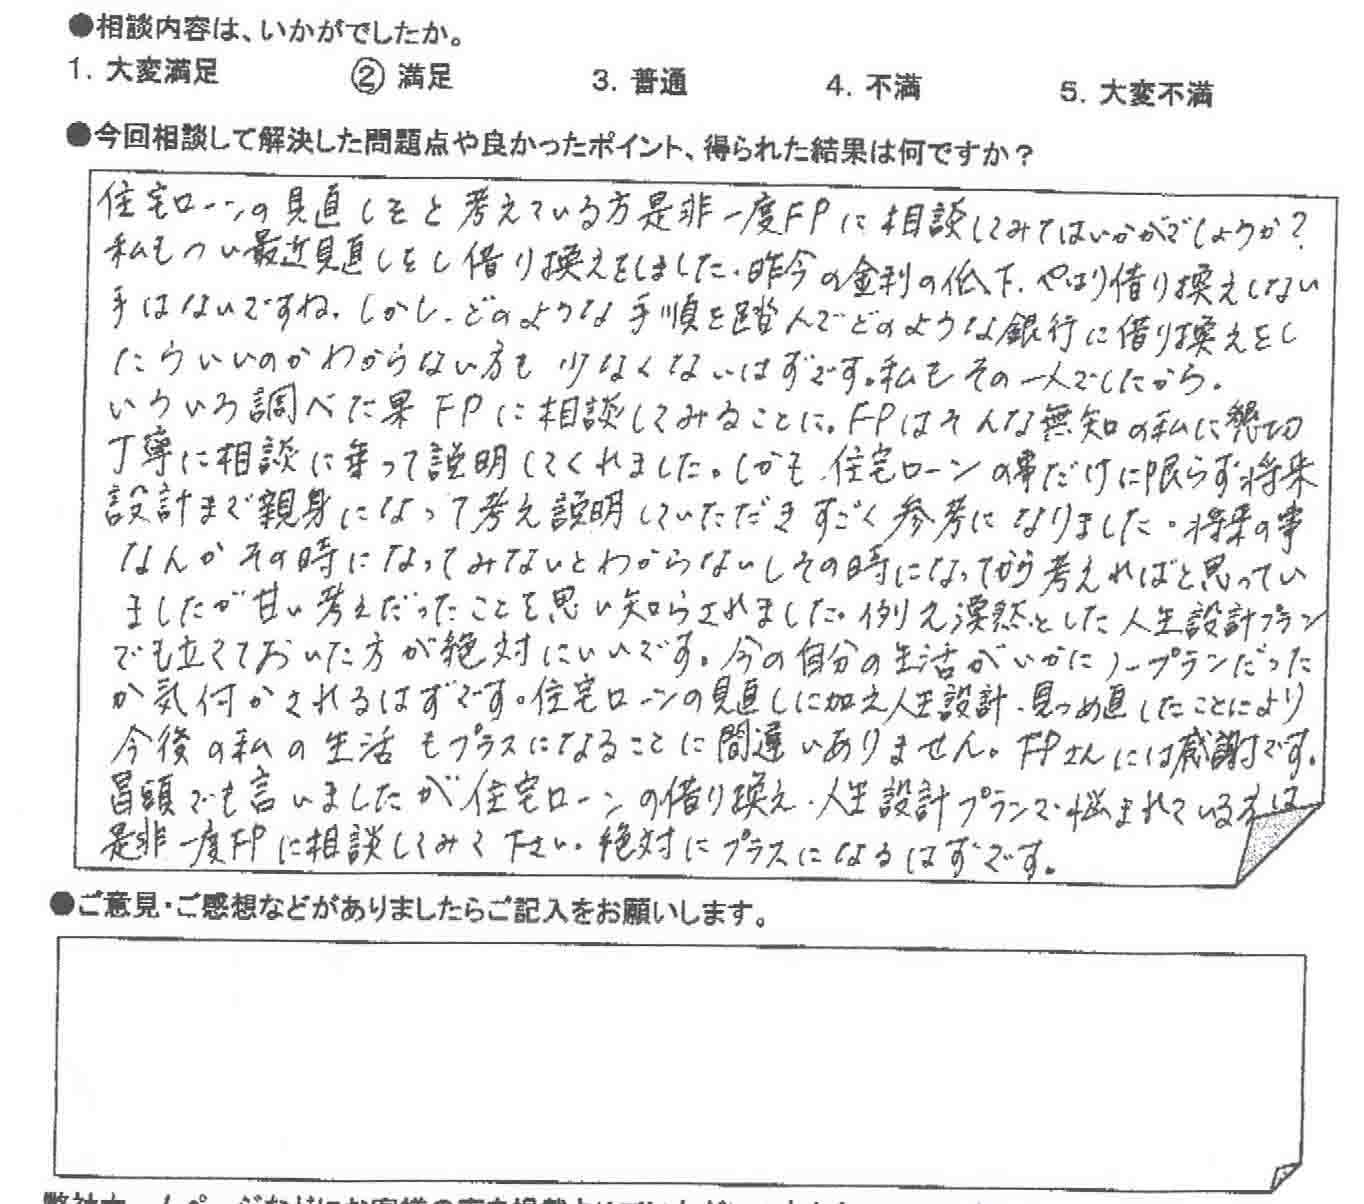 ●相談内容は、いかがでしたか。
1. 大変満足 ② 満足 3. 普通 4. 不満 5. 大変不満
●今回相談して解決した問題点や良かったポイント、得られた結果は何ですか？
住宅ローンの見直しをと考えている方是非一度FPに相談してみてはいかがでしょうか？
私もつい最近見直しをし借り換えをしました。昨今の金利の低下、やはり借り換えしない
手はないですね。しかし、どのような手順を踏んでどのような銀行に借り換えをし
たらいいのかわからない方も少なくないはずです。私もその一人でしたから。
いろいろ調べた果FPに相談してみることに。FPはそんな無知の私に懇切
丁寧に相談に乗って説明してくれました。しかも、住宅ローンの事だけに限らず将来
設計まで親身になって考え説明していただきすごく参考になりました。将来の事
なんかその時になってみないとわからないしその時になってから考えればと思ってい
ましたが甘い考えだったことを思い知らされました。例え漠然とした人生設計プラン
でも立てておいた方が絶対にいいです。今の自分の生活がいかにノープランだった
か気付かされるはずです。住宅ローンの見直しに加え人生設計、見つめ直したことにより
今後の私の生活もプラスになることに間違いありません。FPさんには感謝です。
冒頭でも言いましたが住宅ローンの借り換え、人生設計プランで悩まれている方は
是非一度FPに相談してみて下さい。絶対にプラスになるはずです。
●ご意見・ご感想などがありましたらご記入をお願いします。